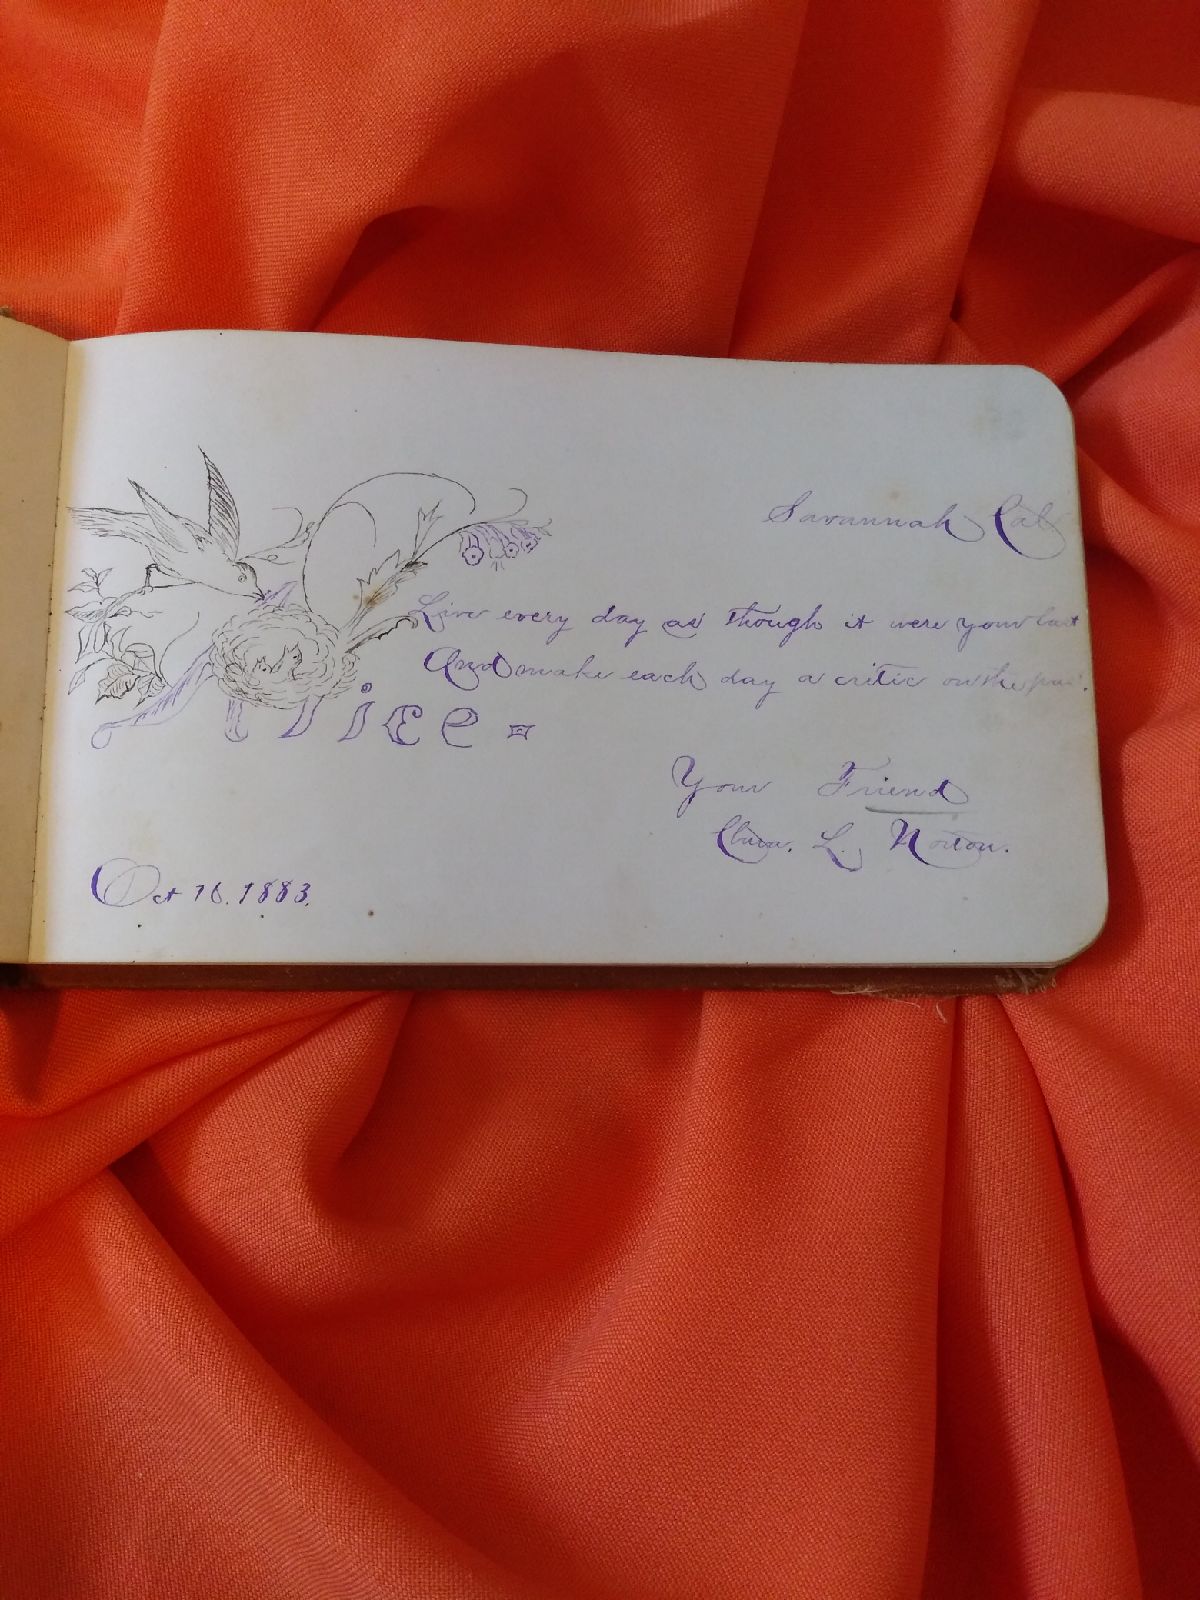 Savannah Cal
Live every day as though it were your last
And make each day a critic on the past.
Alice
Your Friend
Clara. L. Norton.
Oct 16. 1883.